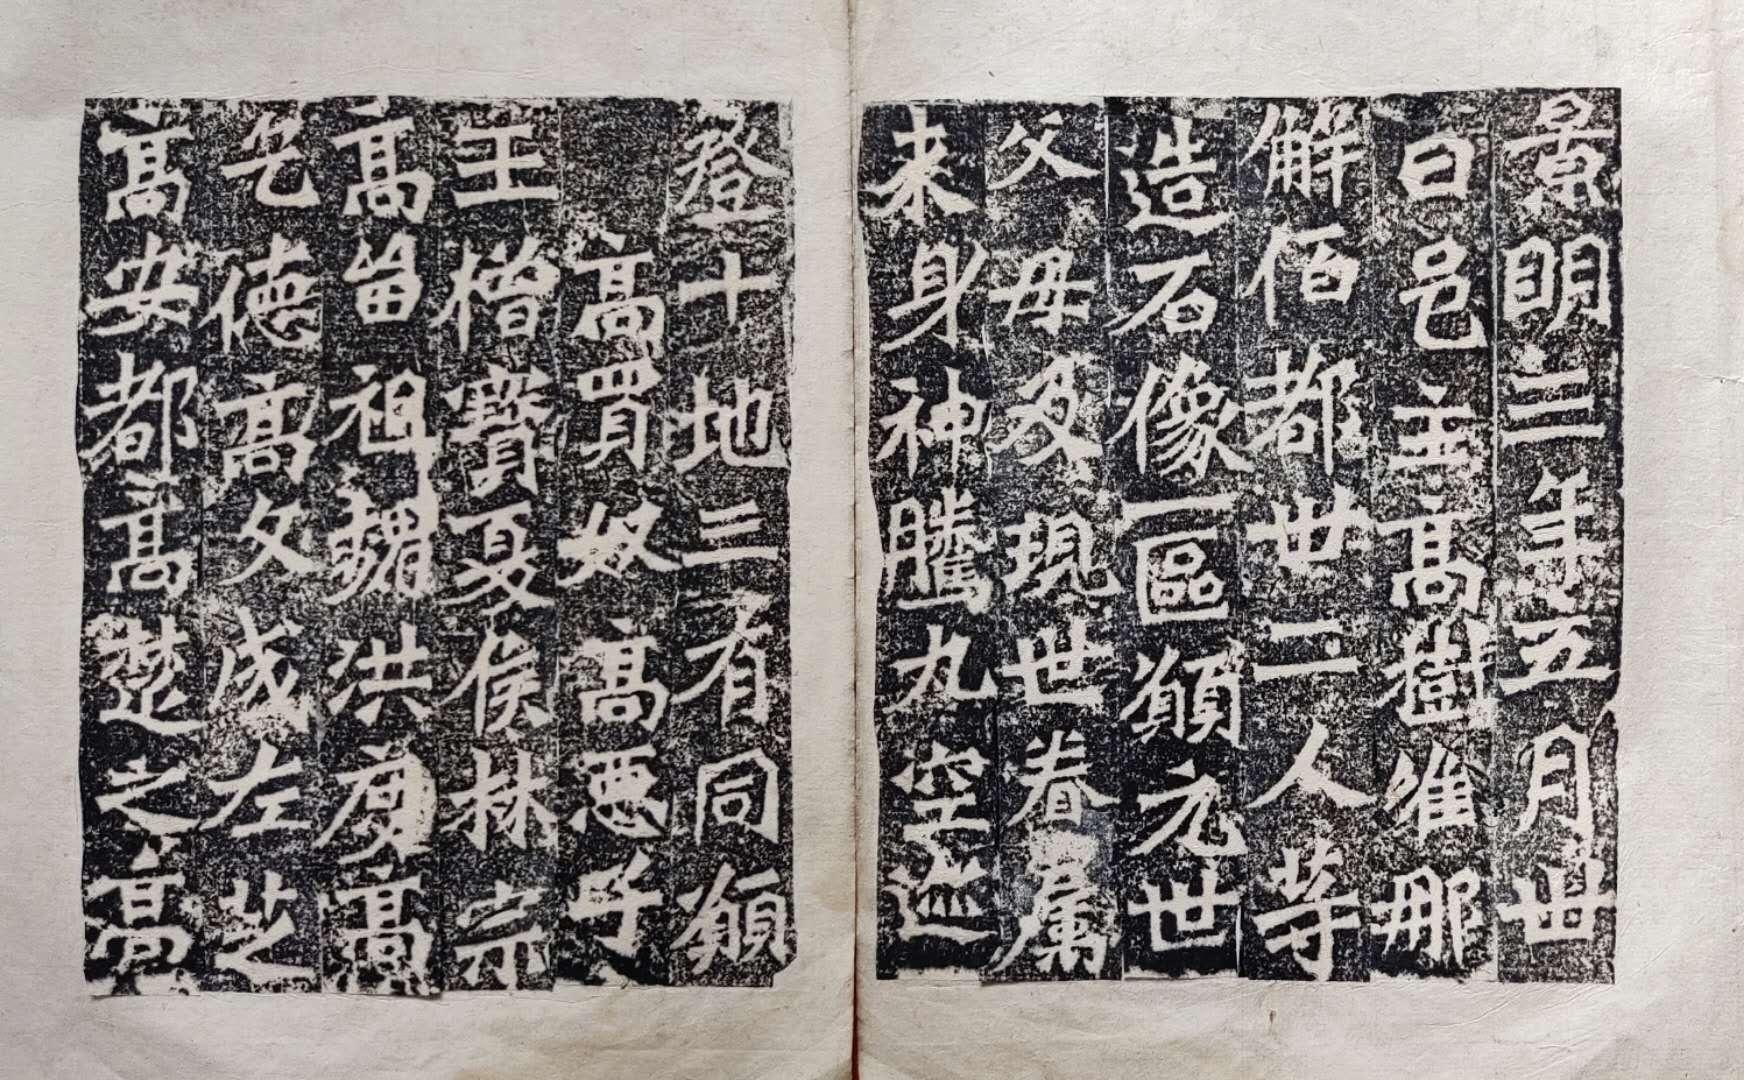 景明三年五月卅
日邑主高樹唯那
解佰都卅二人等
造石像一區願元世
父母及現世眷屬
来身神騰九空迹
登十地三有同願
高買奴高惡子
王僧寶夏侯林宗
高留祖魏洪度高
乞德高文成左芝
高安都高楚之高